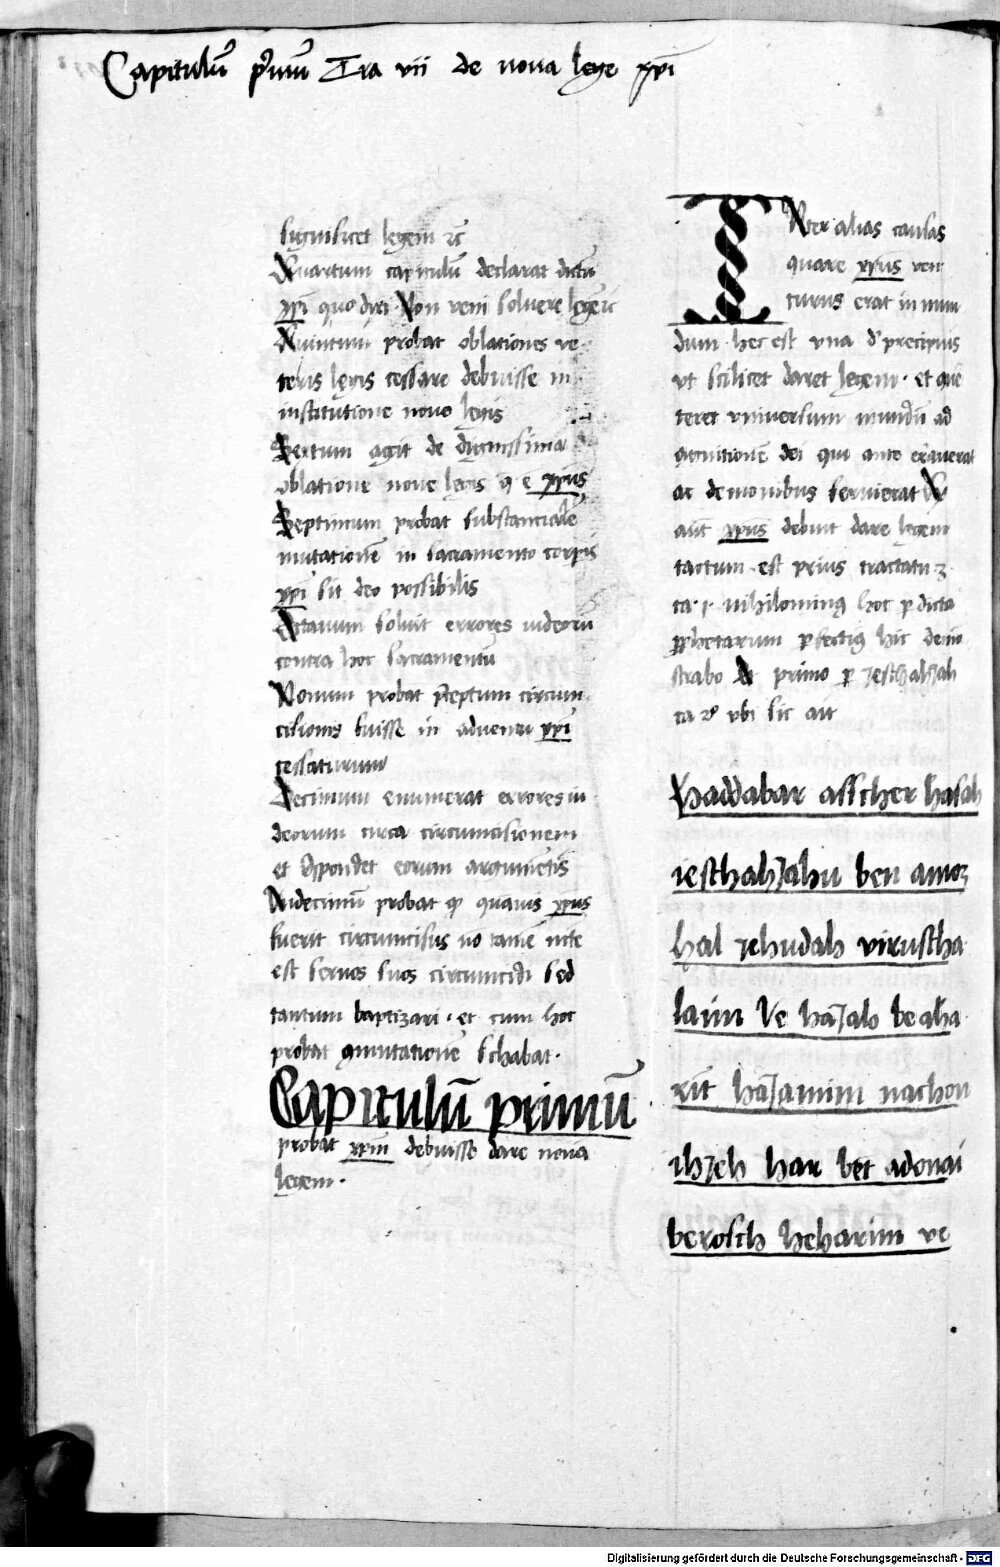 Capitulū p̄mū Tra vii de noua lege xp̄i
significet legem ⁊c̄
Quartum capitulū declarat dictū
xp̄i quo dixi Non veni soluere legē ⁊c
Quintum probat oblationes ve
teris legis cessare debuisse in
institutione noue legis
Sextum agit de dignissima
oblatione noue legis q̄ ē xp̄us
Septimum probat substancialē
mutationē in sacramento corpis
xp̄i sit deo possibilis
Octauum soluit errores iudeorū
contra hoc sacramentū
Nonum probat p̄ceptum circum
cisionis fuisse in aduentu xp̄i
cessaturum
Decimum enumerat errores iu
deorum circa circumcisionem
et respondet eorum argumētis
Undecimū probat qꝫ quamuis xp̄us
fuerit circumcisus nō tamē nite
est seruos suos circumcidi sed
tantum baptizari · et cum hoc
probat mutationē schabat ·
Capitulū primū
probat xp̄m debuisse dare nouā
legem ·
INter alias causas
quare xp̄us ven
turus erat in mun
dum · hec est vna d̓ precipuis
vt scilicet daret legem · et que
teret vniuersum mundū ad
agnitionē dei qui ante errauerat
ac demonibus seruierat
aūt xp̄us debuit dare legem
tactum est prius tractatu 3
ca · 1 · nihilominꝰ hoc p dicta
ꝓphetarum pfectiꝰ hic demō
strabo Et primo ꝑ JeschahJah
ca 2° vbi sic ait
Haddabar asscher hasah
ieschahJahu ben amoz
hal Jehudah viruscha
laim Ve haJalo beaha
rit haJamim nachon
ihJeh har bet adonai
berosch heharim ve
Digitalisierung gefördert durch die Deutsche Forschungsgemeinschaft - DFG